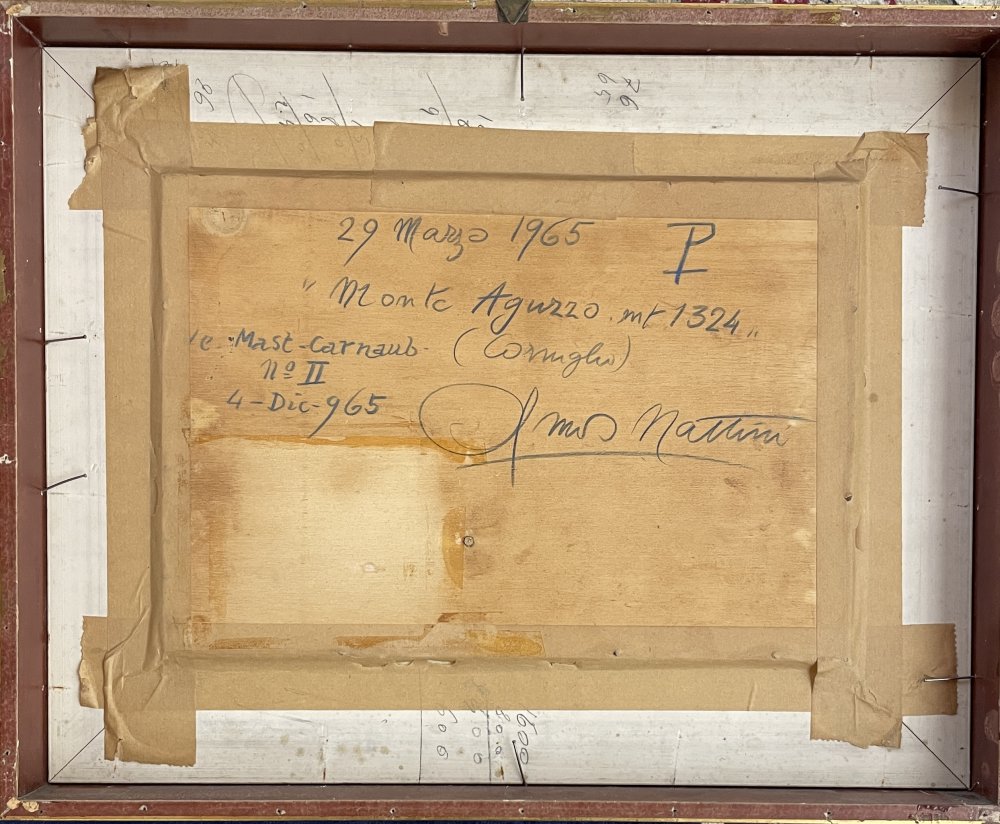 29 Marzo 1965
P
" Monte Aguzzo. mt 1324 „
(Corniglio)
Mast-Carnaub-
Nº II
4-Dic-965
Amos Nattini